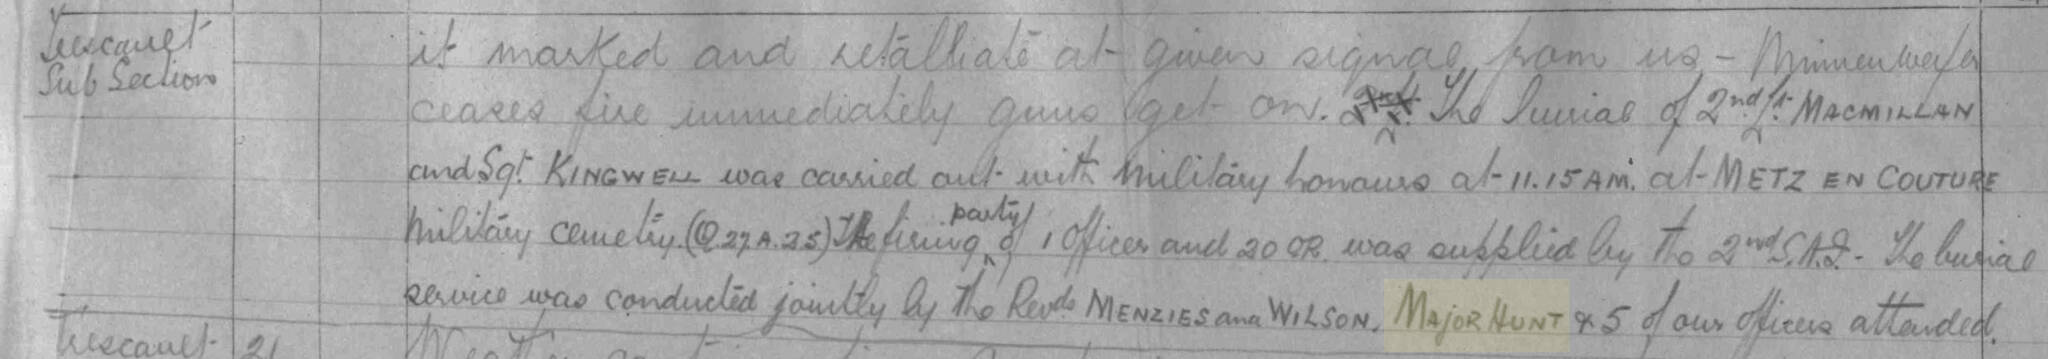 Trescault
Sub Section
it marked and retalliate at given signal from us - Minnenwerfer
ceases fire immediately guns get on. The burial of 2nd Lt. MACMILLAN
and Sgt. KINGWELL was carried out with military honours at 11.15 AM. at METZ EN COUTURE
military cemetry. (Q.27.A.2.5) The firing party of 1 Officer and 20 OR. was supplied by the 2nd S.A.I. - The burial
service was conducted jointly by the Revds MENZIES and WILSON. MAJOR HUNT & 5 of our officers attended.
Trescault 21